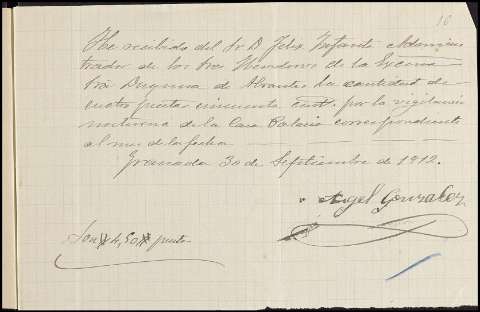 10
He recibido del Sr D. Felix Infante Adminis
trador de los Sres Herederos de la Excma
Sra Duquesa de Abrantes la cantidad de
cuatro pesetas cincuenta cents. por la vigilancia
nocturna de la Casa Palacio correspondiente
al mes de la fecha.
Granada 30 de Septiembre de 1912.
Angel Gonzalez
Son 4,50 pesetas